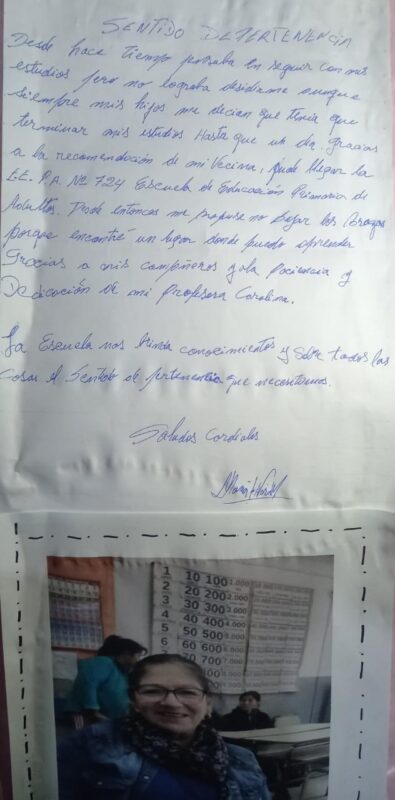 SENTIDO DE PERTENENCIA
Desde hace tiempo pensaba en seguir con mis
estudios pero no lograba desidirme aunque
siempre mis hijos me decian que tenia que
terminar mis estudios Hasta que un dia gracias
a la recomendación de mi Vecina, Pude llegar la
E.E.P.A. Nº 724 Escuela de Educación Primaria de
Adultos. Desde entonces me propuse no bajar los Brazos
porque encontré un lugar donde puedo aprender
Gracias a mis compañeros y la Paciencia y
Dedicación de mi Profesora Carolina.
La Escuela nos brinda conocimientos y sobre todas las
cosas el Sentido de pertenencia que necesitamos.
Saludos Cordiales
1 10 100 1.000
2 20 200 2.000
3 30 300 3.000
4 40 400 4.000
5 50 500 5.000
6 60 600
70 700